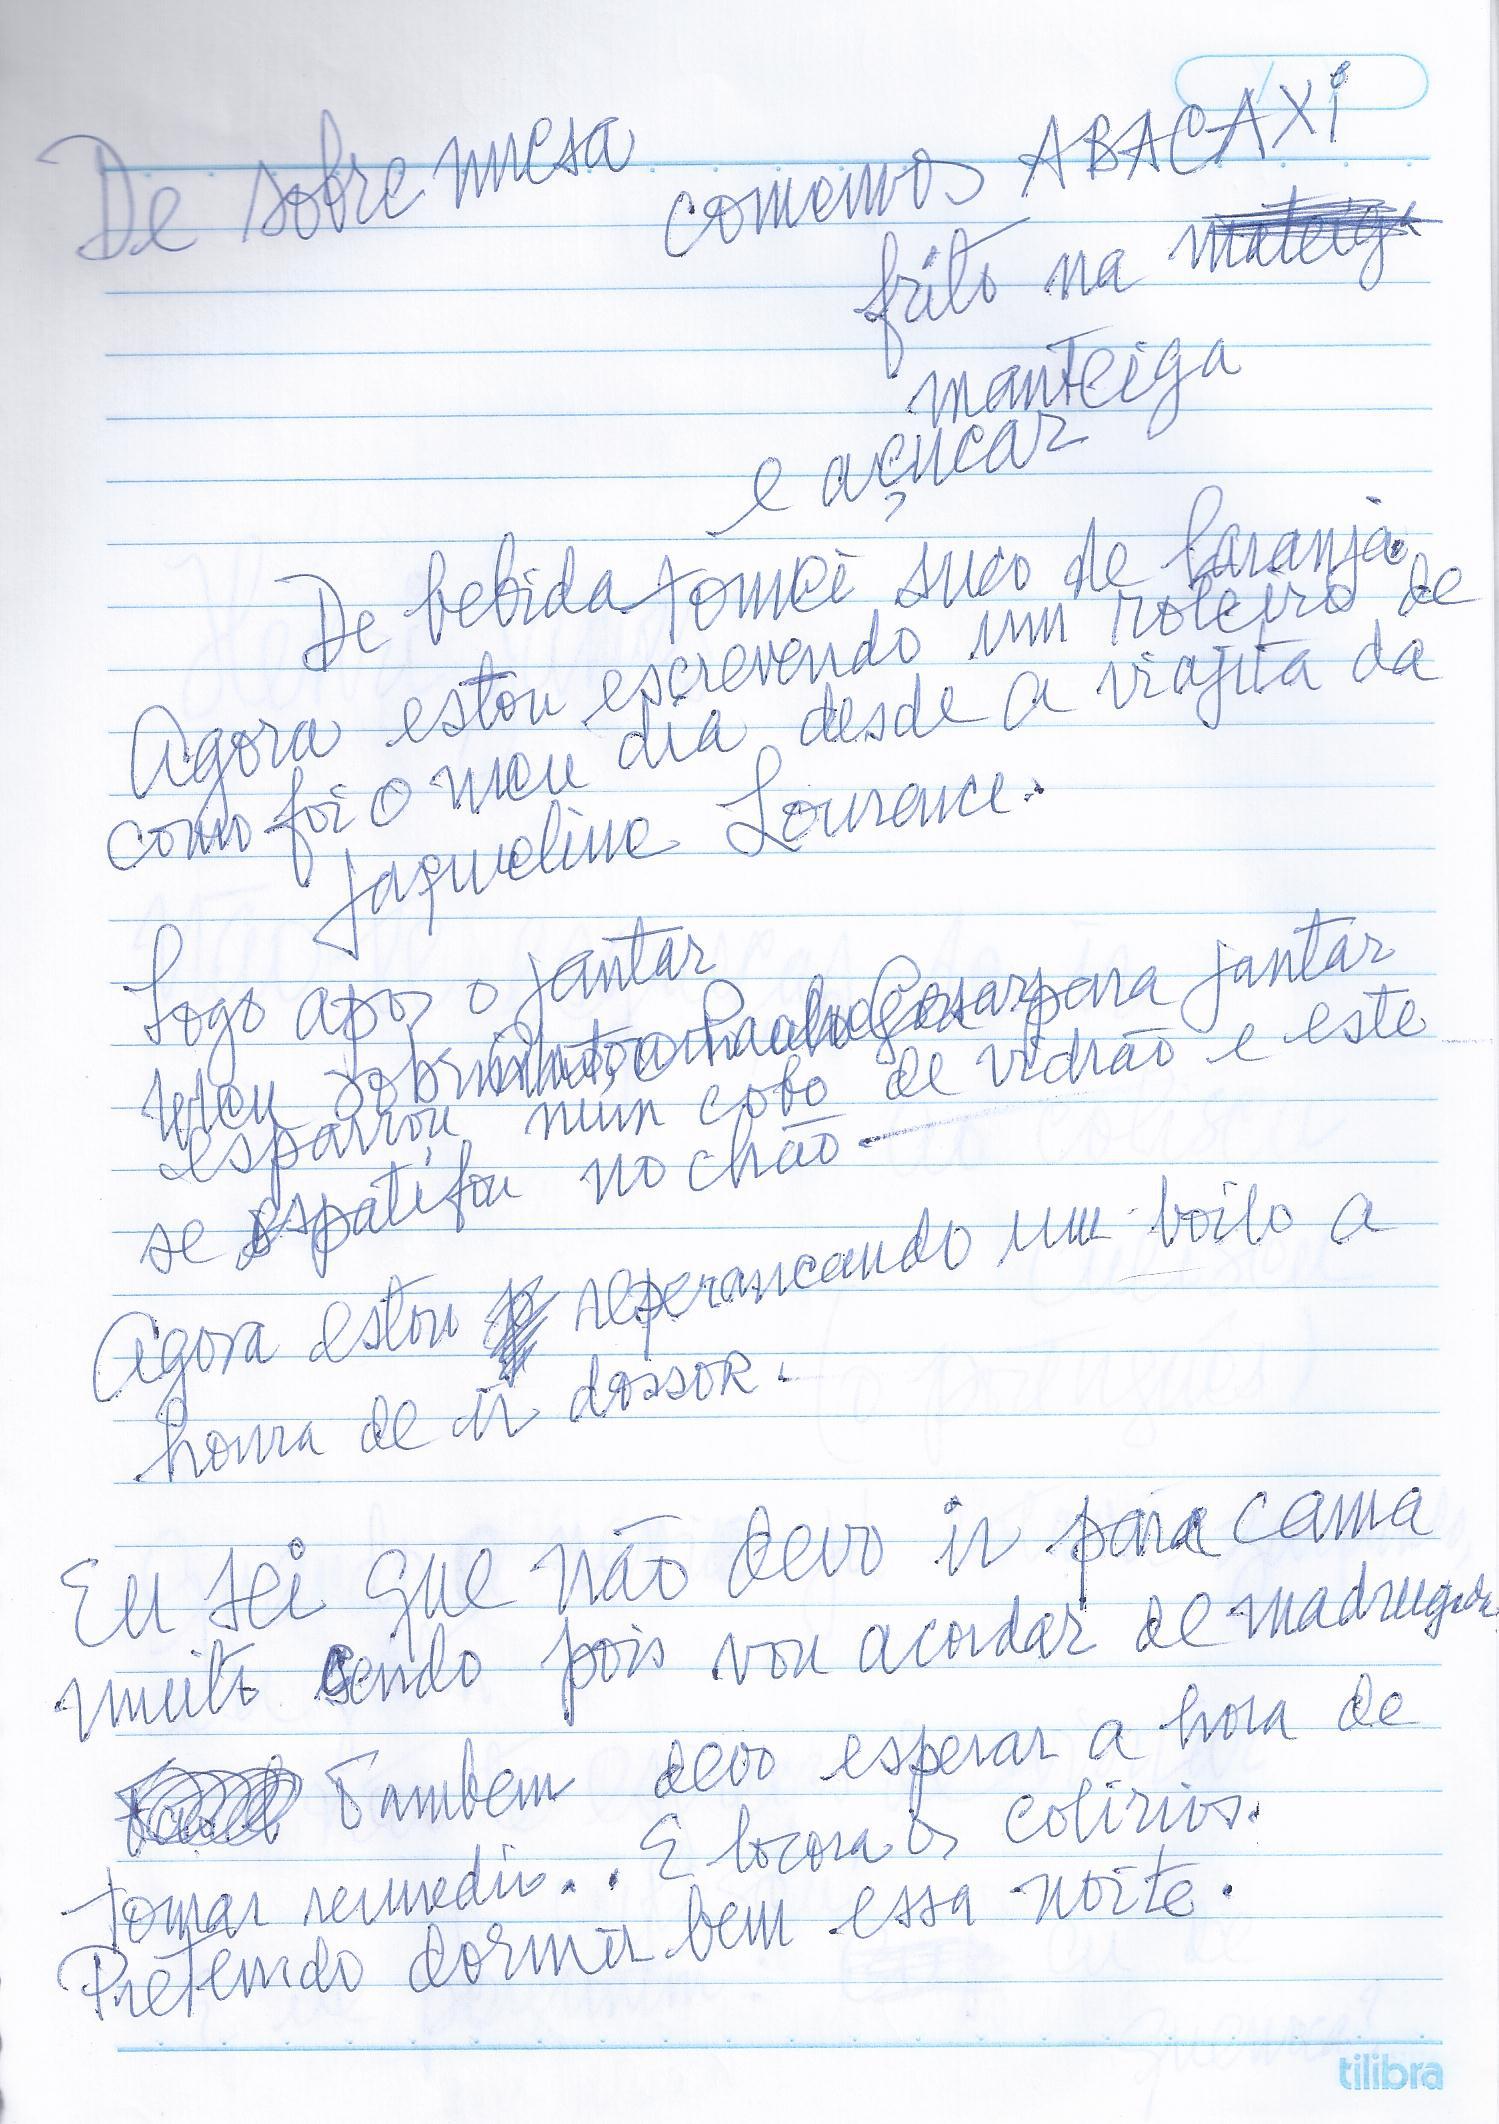 De sobre mesa comemos ABACAXi
frito na mateiga
manteiga
e açucar
De bebida tomei suco de laranja.
Agora estou escrevendo um roteiro de
como foi o meu dia desde a viajita da
Jaqueline Lourence.
Logo apos o jantar
meu para jantar
esparrou num cobo de vidrão e este
se espatifou no chão
Agora estou um a
houra de ir dossor.
Eu sei que não devo ir para cama
muito cendo pois vou acordar de madrugada
Tambem devo esperar a hora de
tomar remedio... E os colirios.
Pretendo dormir bem essa noite.
tilibra